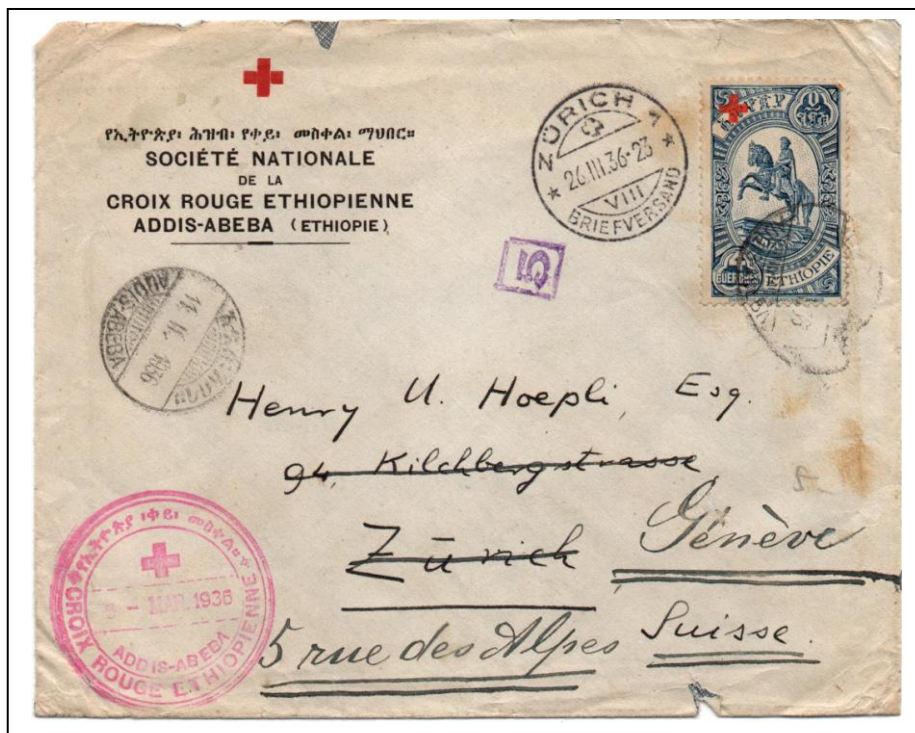 የኢትዮጵያ፡ ሕዝብ፡ የቀይ፡ መስቀል፡ ማህበር።
SOCIÉTÉ NATIONALE
DE LA
CROIX ROUGE ETHIOPIENNE
ADDIS-ABEBA (ETHIOPIE)
ZÜRICH 1
26.III.36-23
VIII
BRIEFVERSAND
GUERCHES
ETHIOPIE
5
ADDIS.ABEBA
1936
Henry U. Hoepli, Esq.
94, Kilchbergstrasse
Zürich
Génève
5 rue des Alpes Suisse.
የኢትዮጵያ ፡ቀይ፡ መስቀል።
MAR. 1936
ADDIS-ABEBA
CROIX ROUGE ETHIOPIENNE